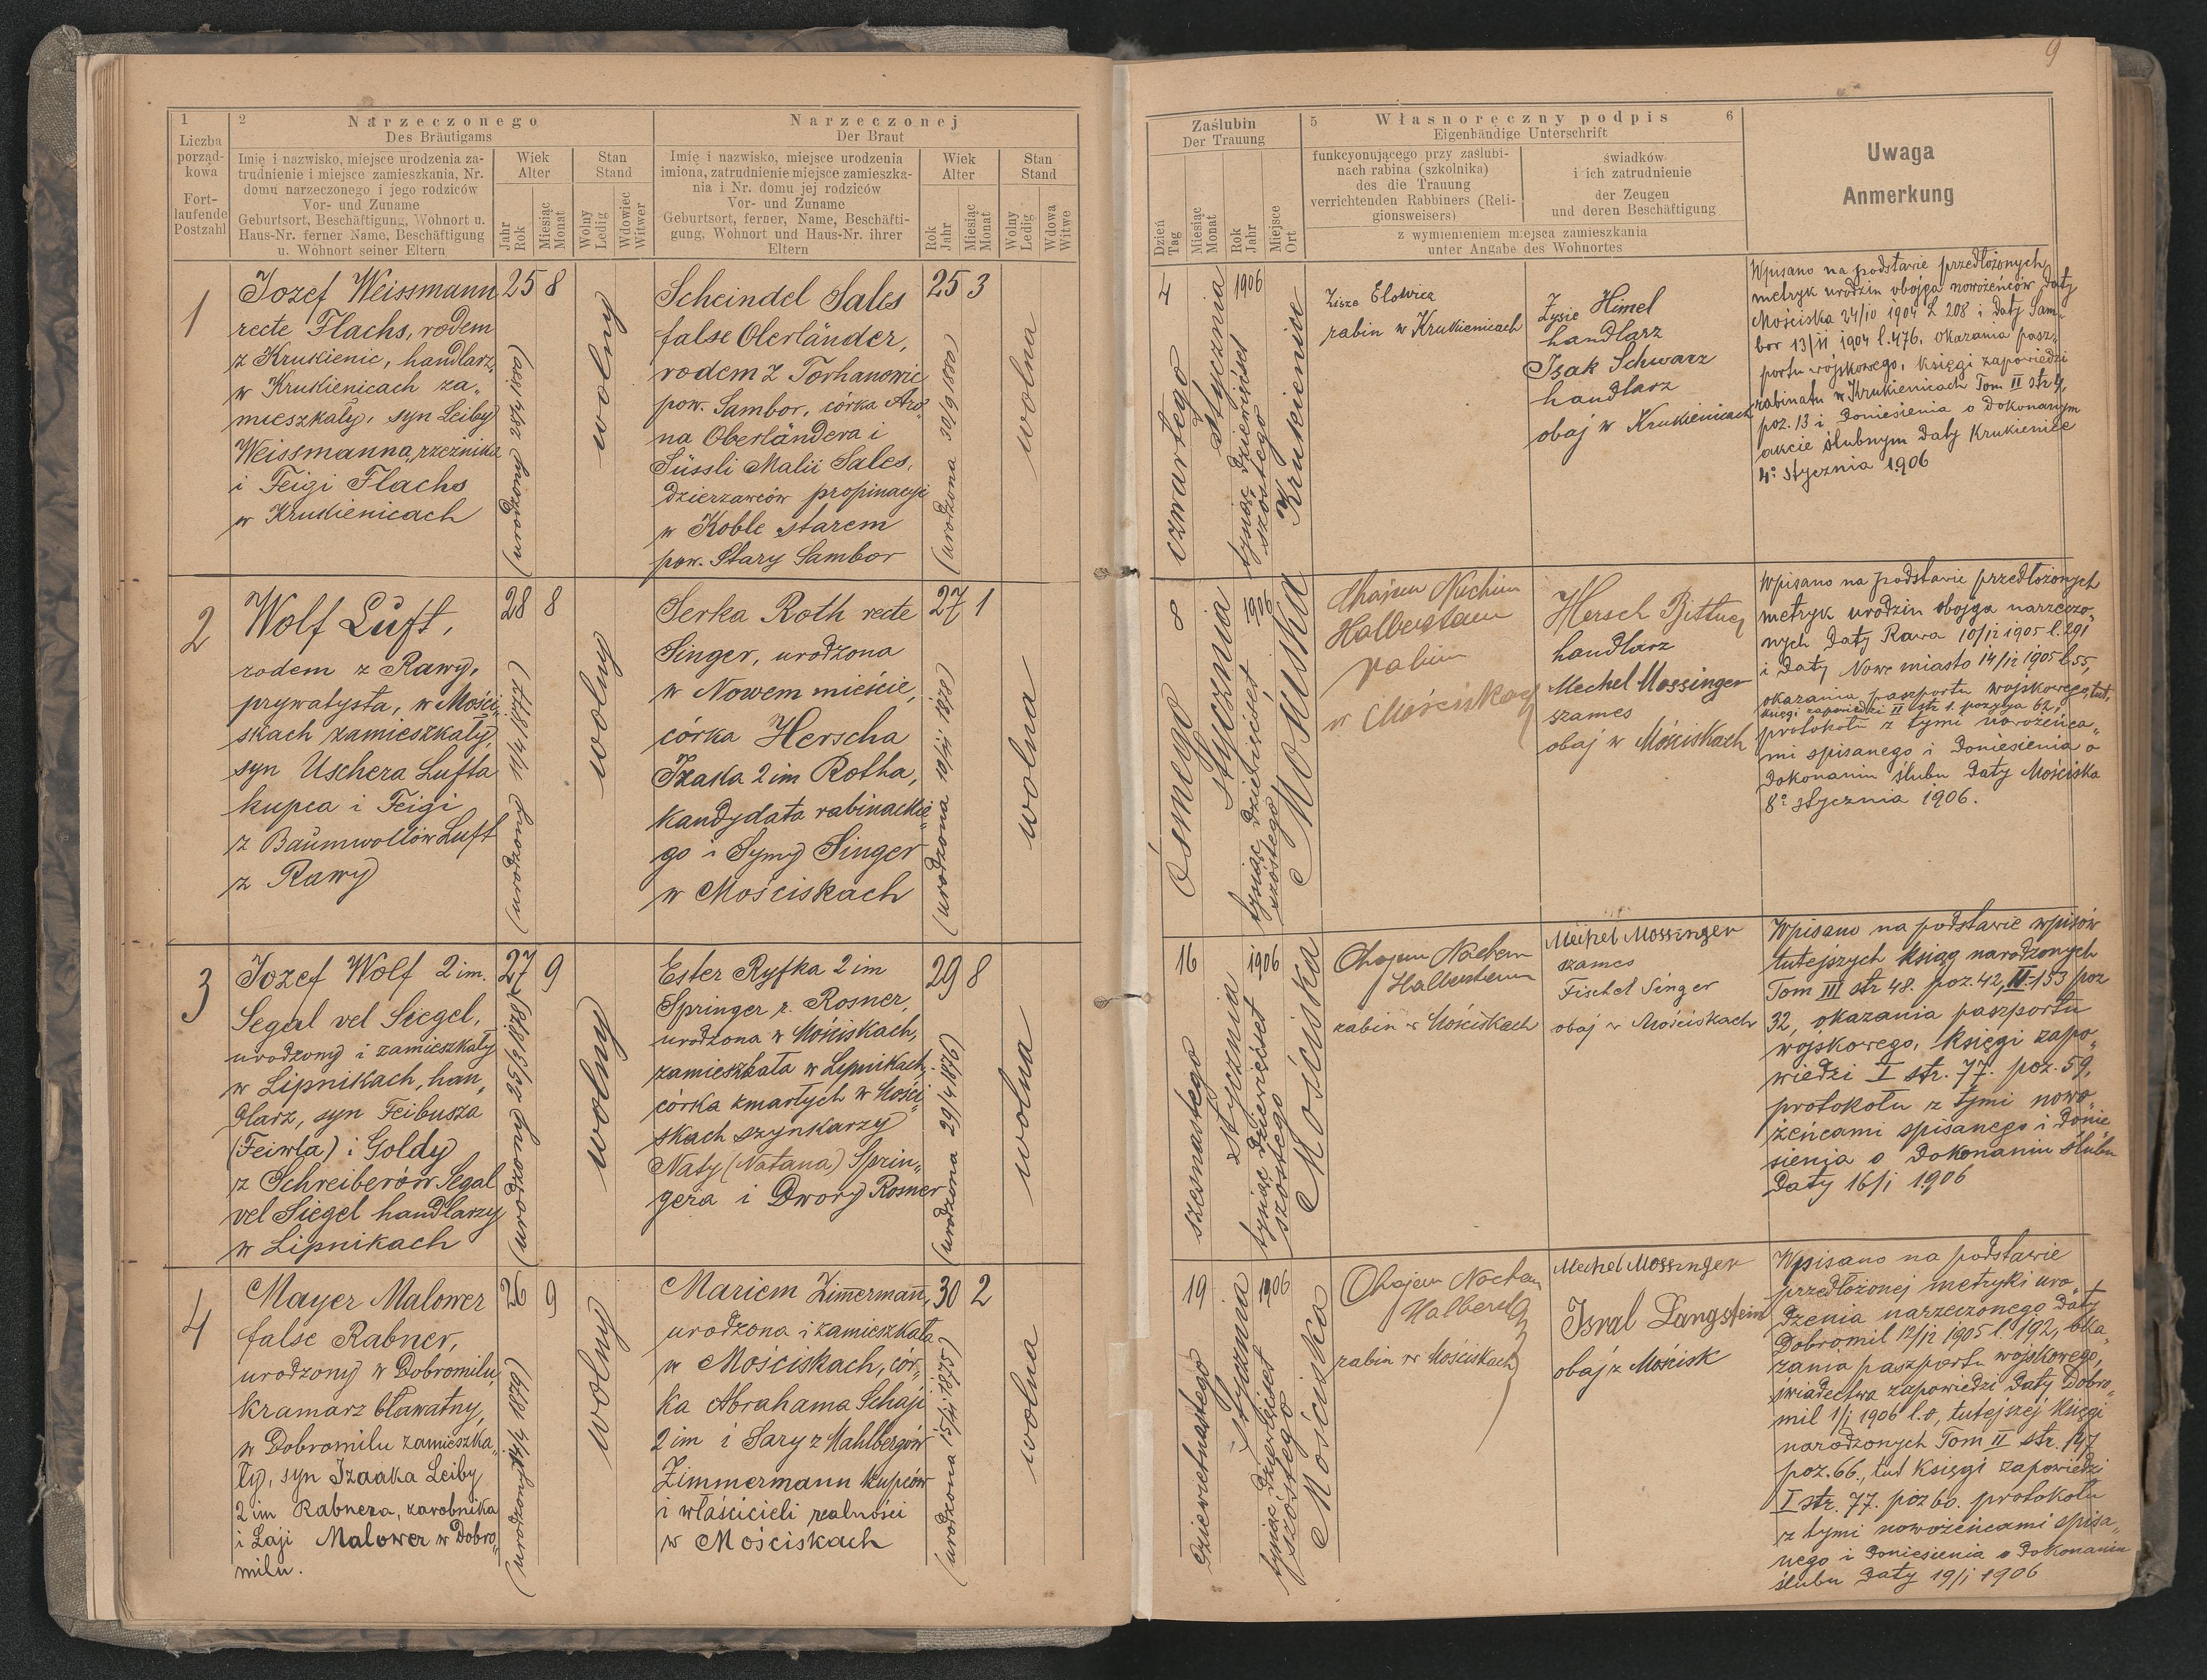 9
1
Liczba
porząd-
kowa
Fort-
laufende
Postzahl
2
Narzeczonego
Des Bräutigams
Imię i nazwisko, miejsce urodzenia za-
trudnienie i miejsce zamieszkania, Nr.
domu narzeczonego i jego rodziców
Vor- und Zuname
Geburtsort, Beschäftigung, Wohnort u.
Haus-Nr. ferner Name, Beschäftigung
u. Wohnort seiner Eltern
Wiek
Alter
Jahr
Rok
Miesiąc
Monat
Stan
Stand
Wolny
Ledig
Wdowiec
Witwer
Narzeczonej
Der Braut
Imię i nazwisko, miejsce urodzenia
imiona, zatrudnienie miejsce zamieszka-
nia i Nr. domu jej rodziców
Vor- und Zuname
Geburtsort, ferner, Name, Beschäfti-
gung, Wohnort und Haus-Nr. ihrer
Eltern
Wiek
Alter
Rok
Jahr
Miesiąc
Monat
Stan
Stand
Wolny
Ledig
Wdowa
Witwe
Zaślubin
Der Trauung
Dzień
Tag
Miesiąc
Monat
Rok
Jahr
Miejsce
Ort
5 Własnoręczny podpis 6
Eigenhändige Unterschrift
funkcyonującego przy zaślubi-
nach rabina (szkolnika)
des die Trauung
verrichtenden Rabbiners (Reli-
gionsweisers)
świadków
i ich zatrudnienie
der Zeugen
und deren Beschäftigung
z wymienieniem miejsca zamieszkania
unter Angabe des Wohnortes
Uwaga
Anmerkung
1
Jozef Weissmann
recte Flachs, rodem
z Krukienic, handlarz,
w Krukienicach za„
mieszkały, syn Leiby
Weissmanna, rzeźnika
i Feigi Flachs
w Krukienicach
25 8
(urodzony 28/4 1880)
wolny
Scheindel Sales
false Oberländer,
rodem z Torhanowic
pow. Sambor, córka Aro„
na Oberländera i
Süssli Malii Sales,
dzierzawców propinacyi
w Koble starem
pow. Stary Sambor
25 3
(urodzona 30/9 1880)
wolna
4
czwartego
stycznia
1906
tysiąc dziewięćset
szóstego
Krukienice
Zisza Elowicz
rabin w Krukienicach
Zysie Himel
handlarz
Isak Schwarz
handlarz
obaj w Krukienicach
Wpisano na podstawie przedłożonych
metryk urodzin obojga nowożeńców daty
Mościska 24/10 1904 L 208 i daty Sam„
bor 13/11 1904 l. 476, okazania pasz„
portu wojskowego, księgi zapowiedzi
rabinatu w Krukienicach Tom II str 4,
poz. 13 i doniesienia o dokonanym
akcie ślubnym daty Krukienice
4o stycznia 1906
2
Wolf Luft,
rodem z Rawy,
prywatysta, w Mości„
skach zamieszkały,
syn Uschera Lufta
kupca i Feigi
z Baumwollów Luft
z Rawy
28 8
(urodzony 11/4 1877)
wolny
Serka Roth recte
Singer, urodzona
w Nowem mieście,
córka Herscha
Izaka 2 im Rotha,
kandydata rabinackie„
go i Symy Singer
w Mościskach
27 1
(urodzona 10/11 1878)
wolna
8
Ósmego
stycznia
1906
tysiąc dziewięćset
szóstego
Mościska
Chajem Nachim
Halberstam
rabin
w Mościskach
Hersch
handlarz
Mechel Mossinger
szames
obaj w Mościskach
Wpisano na podstawie przedłożonych
metryk urodzin obojga narzeczo„
nych daty Rawa 10/12 1905 l. 291
i daty Nowe miasto 14/12 1905 l. 55,
okazania paszportu wojskowego, tut.
księgi zapowiedzi II str 1. pozycya 62,
protokołu z tymi nowożeńca„
mi spisanego i doniesienia o
dokonaniu ślubu daty Mościska
8o stycznia 1906.
3
Jozef Wolf 2 im.
Segal vel Siegel,
urodzony i zamieszkały
w Lipnikach, han„
dlarz, syn Feibusza
(Feiwla) i Goldy
z Schreiberów Segal
vel Siegel handlarzy
w Lipnikach
27 9
(urodzony 25/3 1878)
wolny
Ester Ryfka 2 im
Springer r. Rosner,
urodzona w Mościskach,
zamieszkała w Lipnikach,
córka zmarłych w Mości„
skach szynkarzy
Naty (Natana) Sprin„
gera i Dwory Rosner
29 8
(urodzona 29/4 1876)
wolna
16
szesnastego
stycznia
1906
tysiąc dziewięćset
szóstego
Mościska
Chajem Nachem
Halberstam
rabin w Mościskach
Mechel Mossinger
szames
Fischel Singer
obaj w Mościskach
Wpisano na podstawie wpisów
tutejszych ksiąg narodzonych
Tom III str 48. poz. 42, II-153 poz
32, okazania paszportu
wojskowego, księgi zapo„
wiedzi I str. 77. poz. 59,
protokołu z tymi nowo„
żeńcami spisanego i donie„
sienia o dokonaniu ślubu
daty 16/1 1906
4
Mayer Malower
false Rabner,
urodzony w Dobromilu,
kramarz bławatny,
w Dobromilu zamieszka„
ły, syn Izaaka Leiby
2 im Rabnera, zarobnika
i Łaji Malower w Dobro„
milu.
26 9
(urodzony 14/4 1879)
wolny
Mariem Zimmermann,
urodzona i zamieszkała
w Mościskach, cór„
ka Abrahama Schaji
2 im i Sary z Mahlbergów
Zimmermann kupców
i właścicieli realności
w Mościskach
30 2
(urodzona 15/11 1875)
wolna
19
dziewietnastego
stycznia
1906
tysiąc dziewięćset
szóstego
Mościska
Chajem Nachem
Halberstam
rabin w Mościskach
Mechel Mossinger
Isral Langstein
obaj z Mościsk
Wpisano na podstawie
przedłożonej metryki uro„
dzenia narzeczonego daty
Dobromil 12/12 1905 l. 192, oka„
zania paszportu wojskowego,
świadectwa zapowiedzi daty Dobro„
mil 1/1 1906 l. 8, tutejszej księgi
narodzonych Tom II str. 147
poz. 66., tut księgi zapowiedzi
I str. 77. poz 60. protokołu
z tymi nowożeńcami spisa„
nego i doniesienia o dokonaniu
ślubu daty 19/1 1906